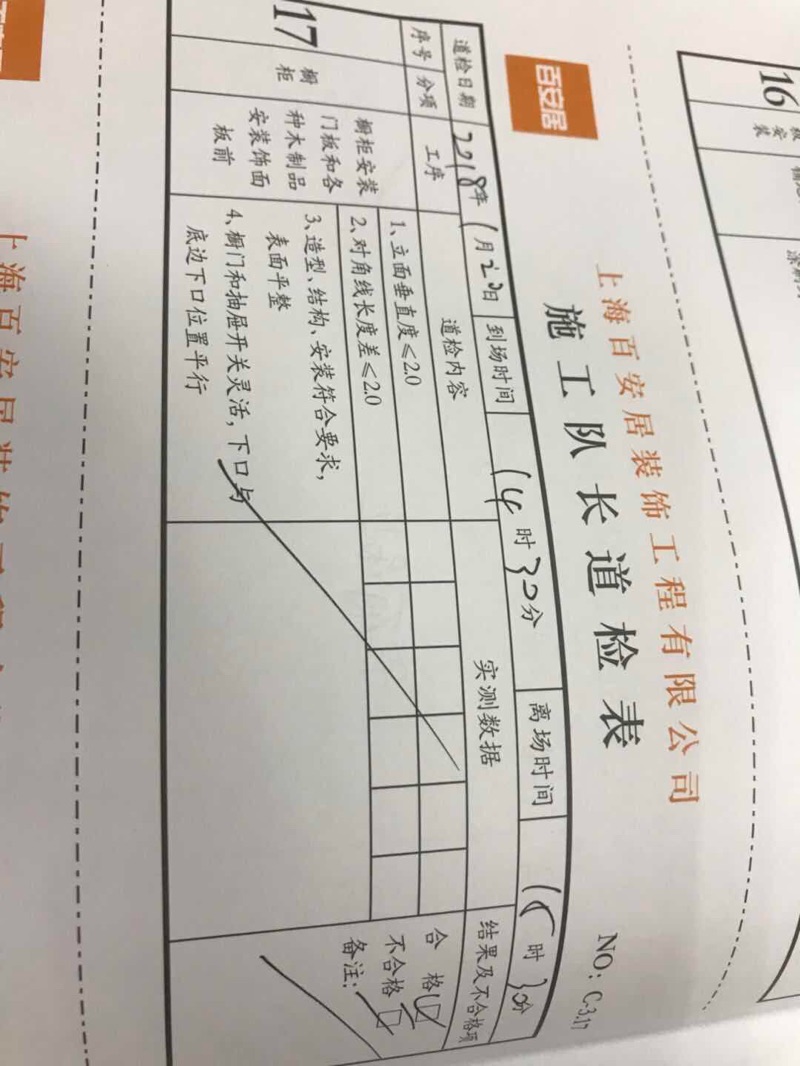 百安居
上海百安居装饰工程有限公司
施工队长道检表
NO: C-3.17
道检日期 2018年1月20日 到场时间 14时30分 离场时间 时30分
序号 分项 工序 道检内容 实测数据 结果及不合格项
17
橱柜
橱柜安装
门板和各
种木制品
安装饰面
板前
1、立面垂直度≤2.0
2、对角线长度差≤2.0
3、造型、结构、安装符合要求,
表面平整
4、橱门和抽屉开关灵活,下口与
底边下口位置平行
合 格
不合格
备注:
16
板安装
上海百安居装饰工程